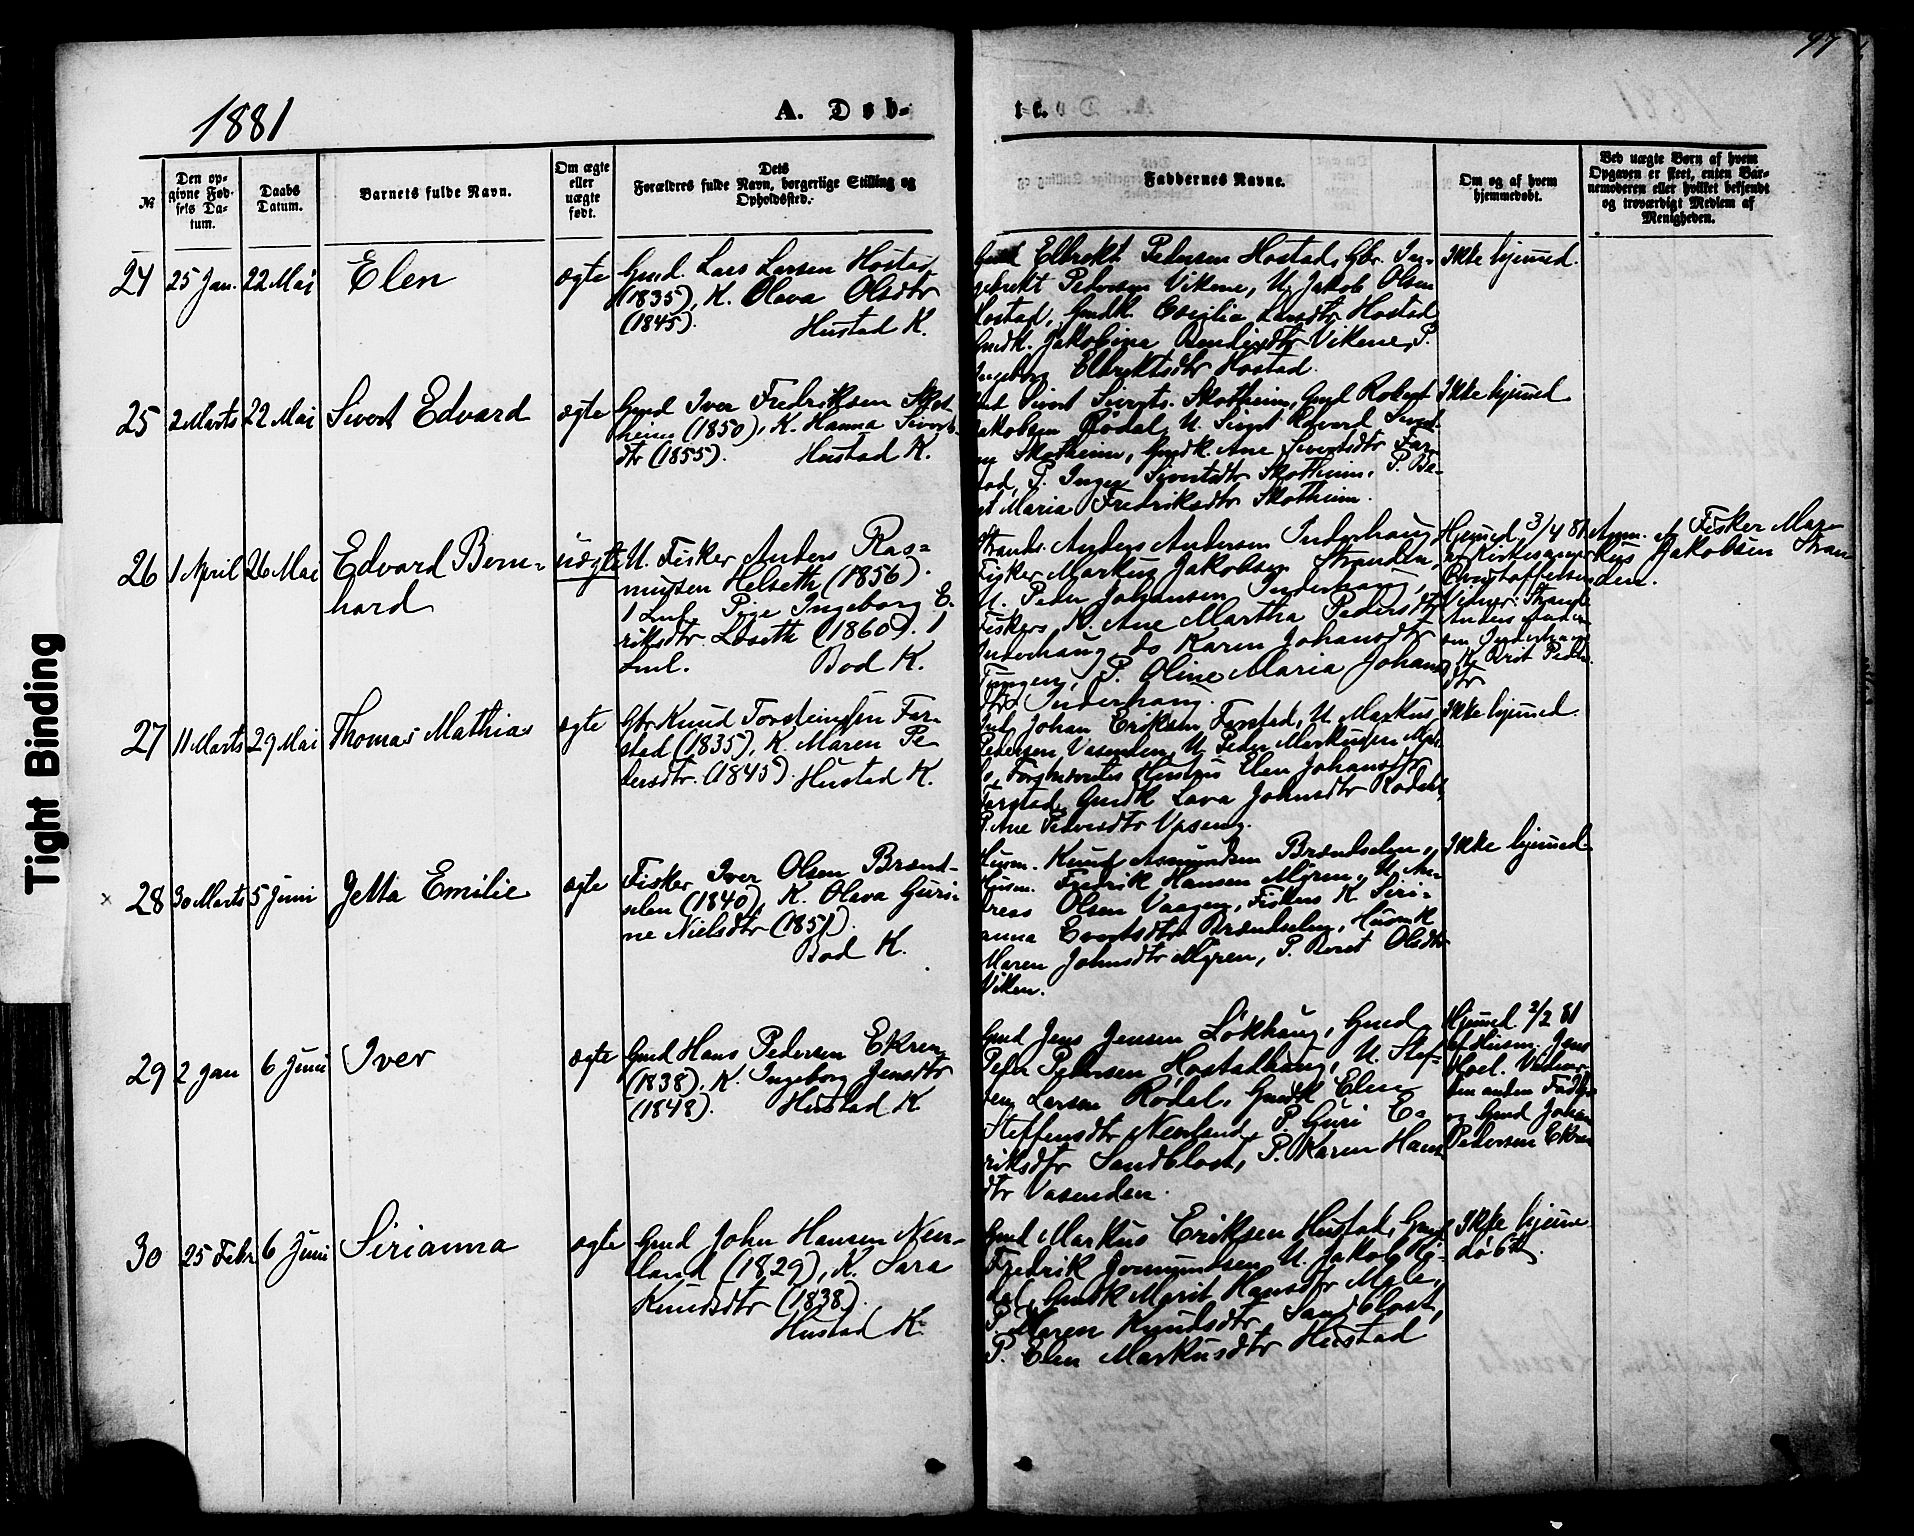 97
1881
A. Døb-
te.
№
Den op-
givne Fød-
sels Da-
tum.
Daabs
Datum.
Barnets fulde Navn.
Om ægte
eller
uægte
født.
Dets
Forældres fulde Navn, borgerlige Stilling og
Opholdssted.
Faddernes Navne.
Om og af hvem
hjemmedøbt.
Ved uægte Børn af hvem
Opgaven er skeet, enten Bar-
nemoderen eller hvilket bekjendt
og troværdigt Medlem af
Menigheden.
24 25 Jan. 22 Mai Elen ægte
Gmd. Lars Larsen Hostad
(1835), K. Olava Olsdtr
(1845). Hustad K.
Gmd Elbrekt Pedersen Hostad, Gbr. In-
gebrekt Pedersen Vikene, U. Jakob Olsen
Hostad, Gmdk. Cecilia Larsdtr Hostad
Gmdk. Jakobina Bendixdtr Vikene, P.
Ingeborg Elbrektsdtr Hostad.
Ikke hjemmed.
25 2 Marts 22 Mai Sivert Edvard ægte
Gmd Iver Fredriksen Skot-
heim (1850), K. Hanna Siverts-
dtr (1855). Hustad K.
Gmd Sivert Sieverts. Skotheim, Gmd Robert
Jakobsen Rødal, U. Sivert Edvard Sivert-
sen Skotheim, Gmdk. Ane Sivertsdtr Far-
stad, P. Inger Sivertsdtr Skotheim, P. Be-
rit Maria Fredriksdtr Skotheim.
Ikke hjemmed
26 1 April 26 Mai Edvard Bern-
hard
uægte
U. Fisker Anders Ras-
mussen Helseth (1856).
1 Lml. Pige Ingeborg E-
riksdtr Løseth (1860). 1
Lml. Bod K.
Strands. Anders Andersen Inderhaug,
Fisker Markus Jakobsen Stranden,
U. Peder Johansen Inderhaug,
Fiskers K. Ane Martha Pedersdtr
Inderhaug, do Karen Johansdtr
Tungen, P. Oline Maria Johans-
dtr Inderhaug.
Hjemmed 3/4 81
av Kirkesanger
Christoffersen
Vidner: Strands.
Anders Ander-
sen Inderhaug
og K. Berit Peders-
dtr
Anm. af Fisker Mar-
kus Jakobsen Stran-
den.
27 11 Marts 29 Mai Thomas Mathias ægte
Gbr Knud Torsteinsen Far-
stad (1835), K. Maren Pe-
dersdtr. (1845). Hustad K.
Johan Eriksen Farstad, U. Markus
Pedersen Vasenden, U. Peder Markusen
Hustrus Elen Johansdtr
Farstad, Gmdk Lava Johnsdtr Rødal,
P. Ane Pedersdtr Vaseng.
Ikke hjemmed.
28 30 Marts 5 Juni Jetta Emilie ægte
Fisker Iver Olsen Brænd-
selen (1840), K. Olava Guri-
ne Nielsdtr (1851).
Bod K.
Husm. Knud Asmundsen Brændselen,
Husm. Fredrik Hansen Myren, U. An-
dreas Olsen Vaagen, Fiskers K Siri-
anna Evertsdtr Brændselen, Husmk
Maren Johnsdtr Myren, P. Beret Olsdtr
Viken.
Ikke hjemmed
29 2 Jan 6 Juni Iver ægte
Gmd Hans Pedersen Ekren
(1838), K. Ingeborg Jensdtr
(1848). Hustad K
Gmd Jens Jensen Løkhaug, Gmd
Peder Pedersen Hostadhaug, U. Stef-
fen Larsen Rødal, Gmdk Elen
Steffensdtr Nerland, P. Guri E-
riksdtr Sandblost, P. Karen Hans-
dtr Vasenden.
Hjemmed 2/2 81
af Husm. Jens
Hoel. Vidner
den anden Fadder
og Gmd Johan
Pedersen Ekren
30 25 Febr 6 Juni Sirianna ægte
Gmd John Hansen Ner-
land (1829), K. Sara
Knudsdtr (1838).
Hustad K.
Gmd Markus Eriksen Hustad, Gmd
Fredrik Jomundsen U. Jakob Rø-
dal, Gmdk Marit Hansdtr Male,
P. Maren Knudsdtr Sandblost,
P. Elen Markusdtr Hustad
Ikke hjemme
døbt.
Tight Binding